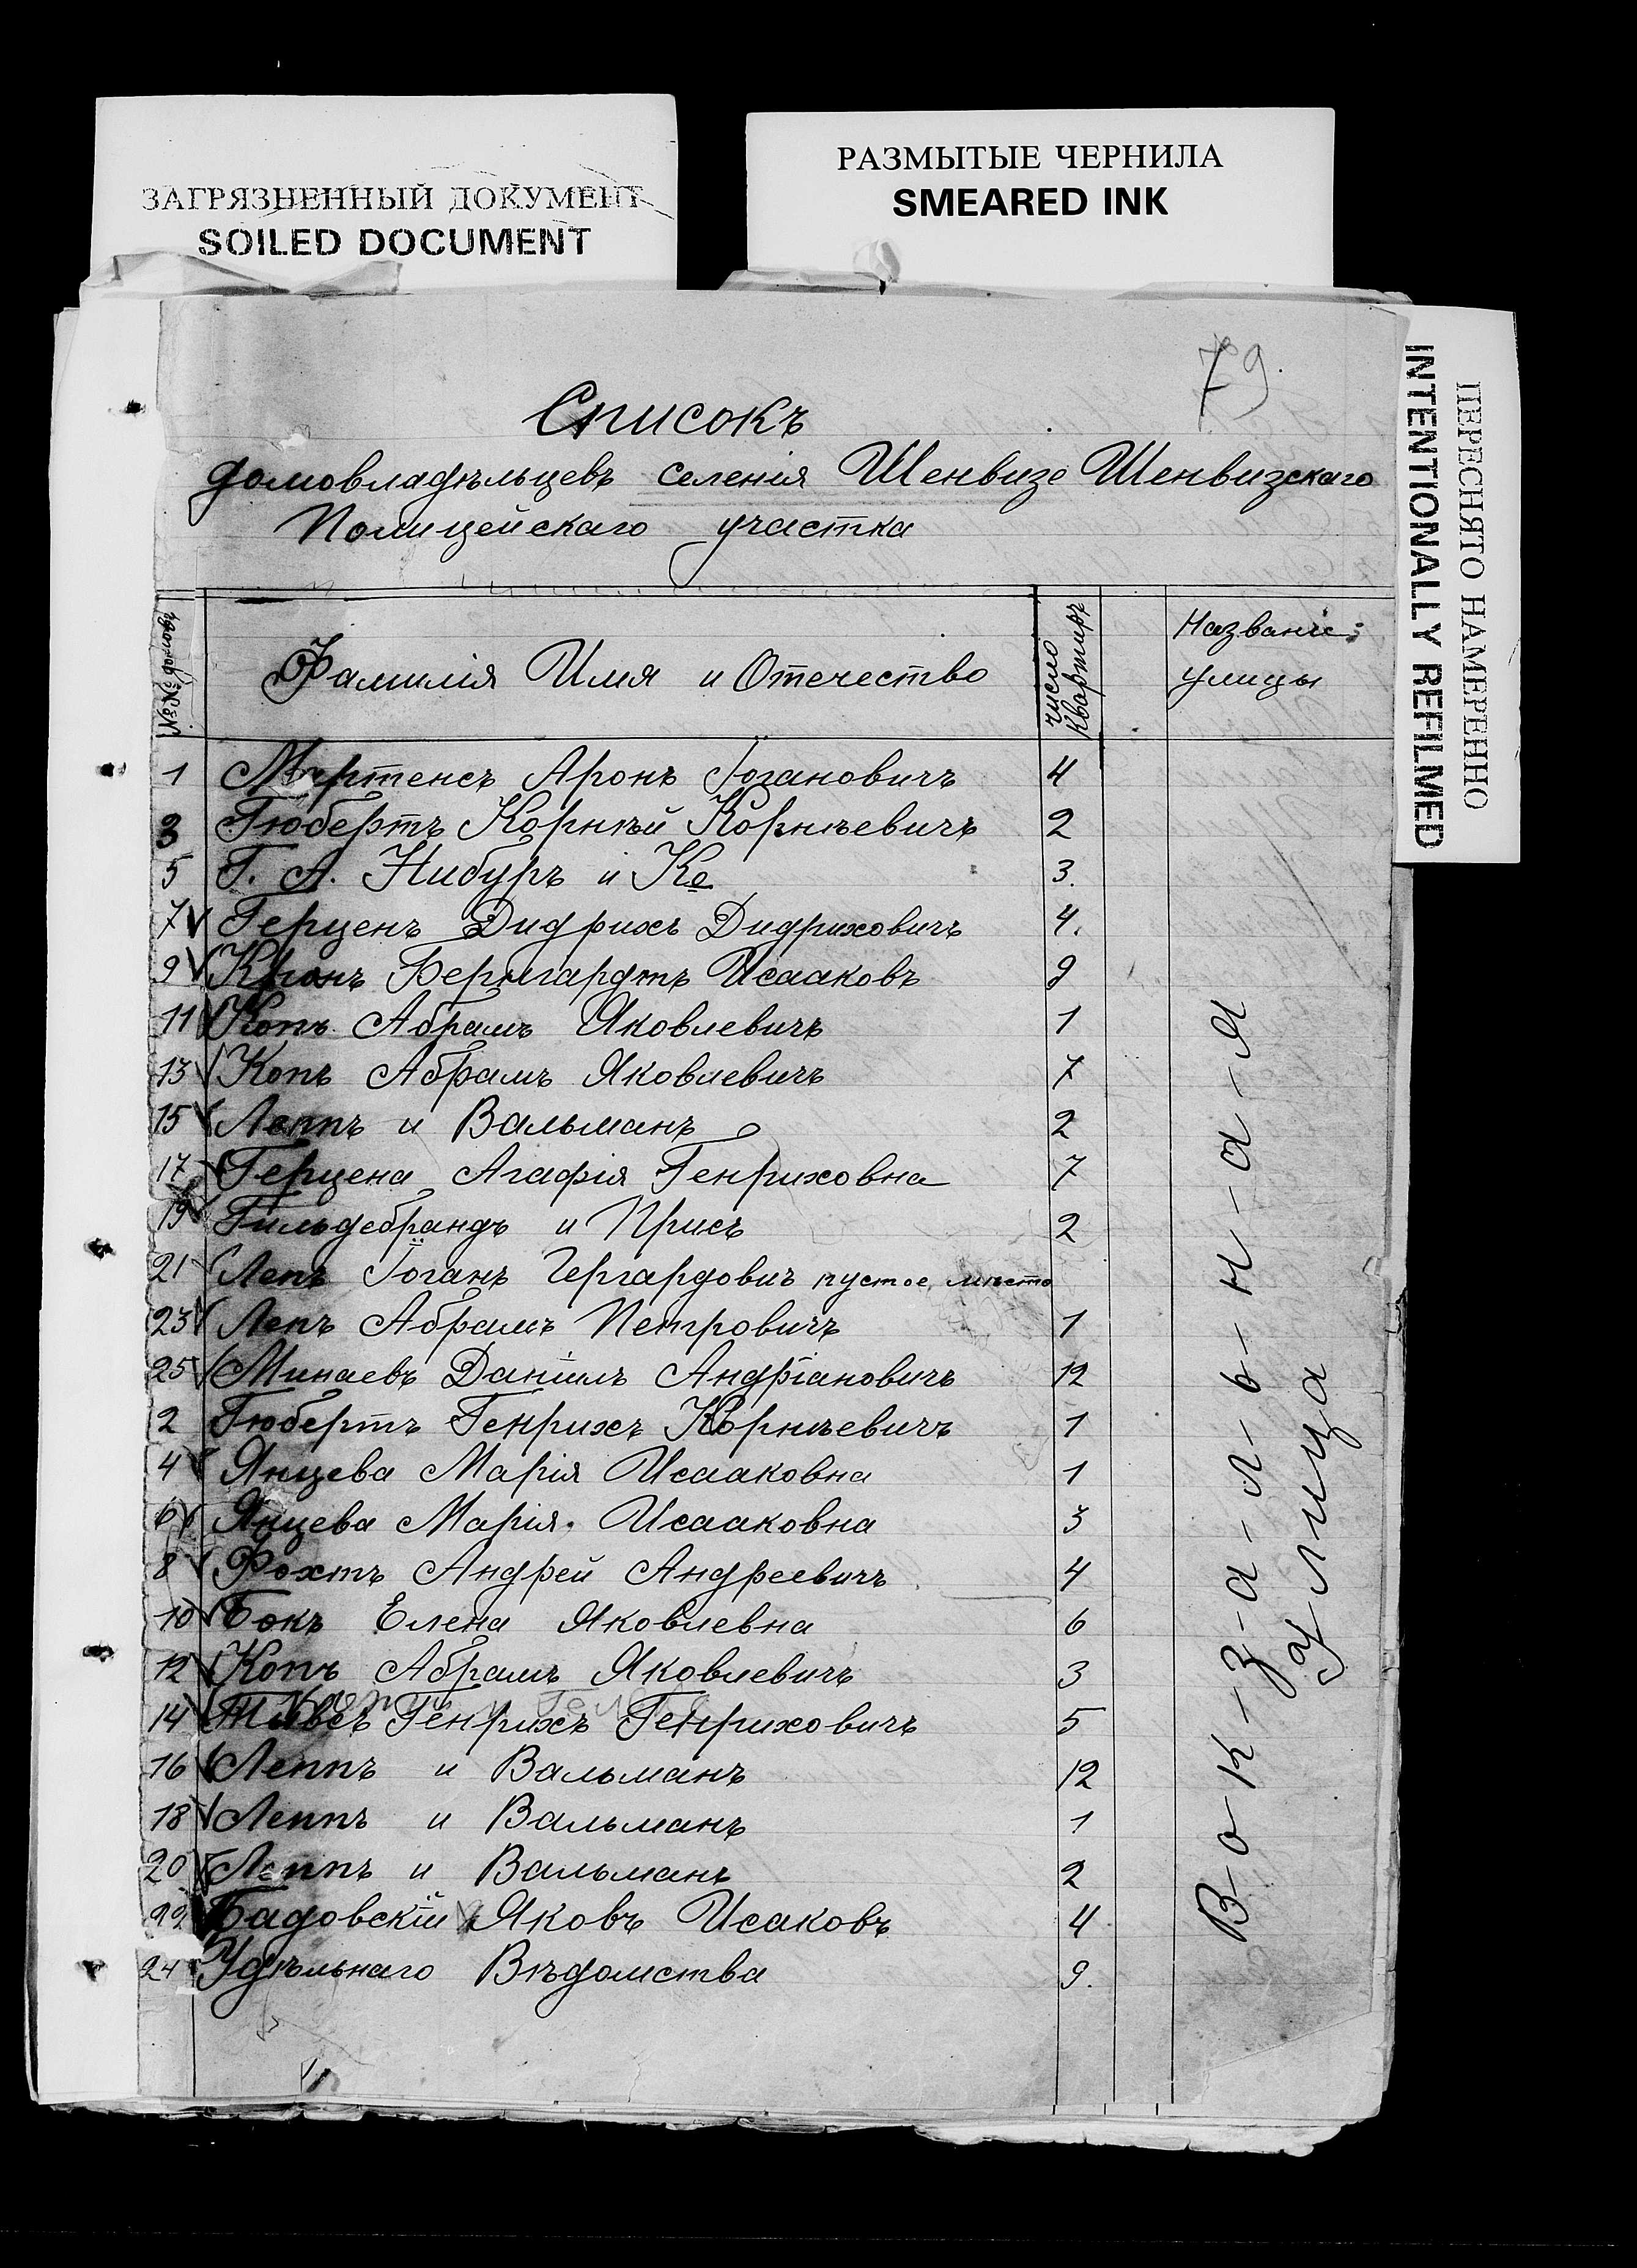 ЗАГРЯЗНЕННЫЙ ДОКУМЕНТ
SOILED DOCUMENT
РАЗМЫТЫЕ ЧЕРНИЛА
SMEARED INK
ПЕРЕСНЯТО НАМЕРЕННО
INTENTIONALLY REFILMED
79.
Списокъ
домовладѣльцевъ селенія Шенвизе Шенвизскаго
Полицейскаго участка
№№ домовъ Фамилія Имя и Отечество число квартиръ Названіе улицы
1 Мартенсъ Аронъ Іогановичъ 4
3 Гюбертъ Корнѣй Корнѣевичъ 2
5 Г. А. Нибуръ и Ко 3.
7 Герценъ Дидрихъ Дидриховичъ 4.
9 Кронъ Бернгардтъ Исааковъ 9
11 Копъ Абрамъ Яковлевичъ 1
13 Копъ Абрамъ Яковлевичъ 7
15 Леппъ и Вальманъ 2
17 Герцена Агафія Генриховна 7
19 Гильдебрандъ и Присъ 2
21 Лепъ Іоганъ Гергардовичъ пустое мѣсто
23 Лепъ Абрамъ Петровичъ 1
25 Минаевъ Даніилъ Андріановичъ 12
2 Гюбертъ Генрихъ Корнѣевичъ 1
4 Янцева Марія Исааковна 1
6 Янцева Марія Исааковна 3
8 Фохтъ Андрей Андреевичъ 4
10 Бокъ Елена Яковлевна 6
12 Копъ Абрамъ Яковлевичъ 3
14 Генрихъ Генриховичъ 5
16 Леппъ и Вальманъ 12
18 Леппъ и Вальманъ 1
20 Леппъ и Вальманъ 2
22 Бадовскій Яковъ Исаковъ 4
24 Удѣльнаго Вѣдомства 9.
В-о-к-з-а-л-ь-н-а-я
улица